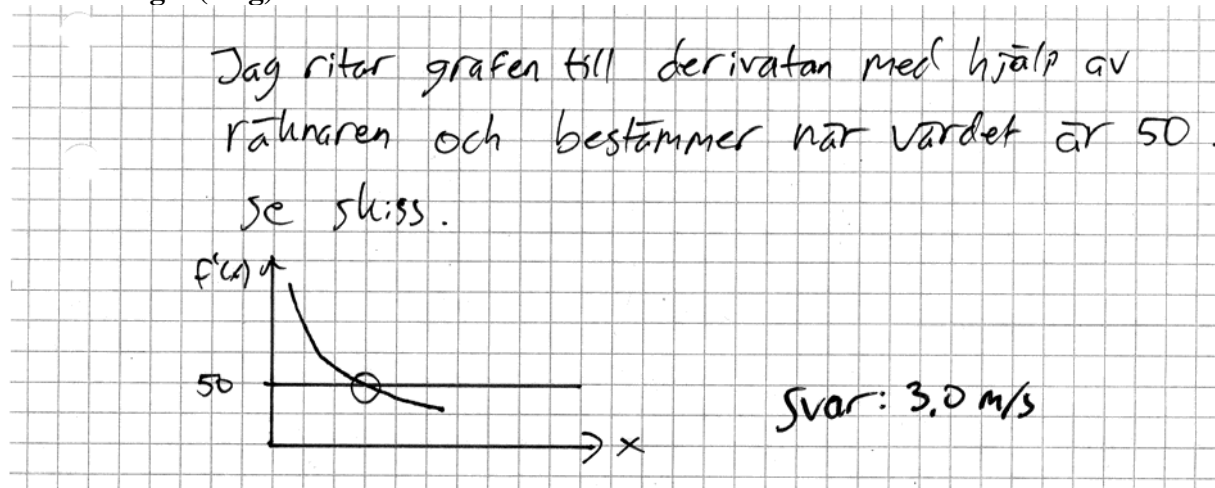 Jag ritar grafen till derivatan med hjälp av
räknaren och bestämmer när värdet är 50.
se skiss.
f'(x)
50
x
Svar: 3,0 m/s